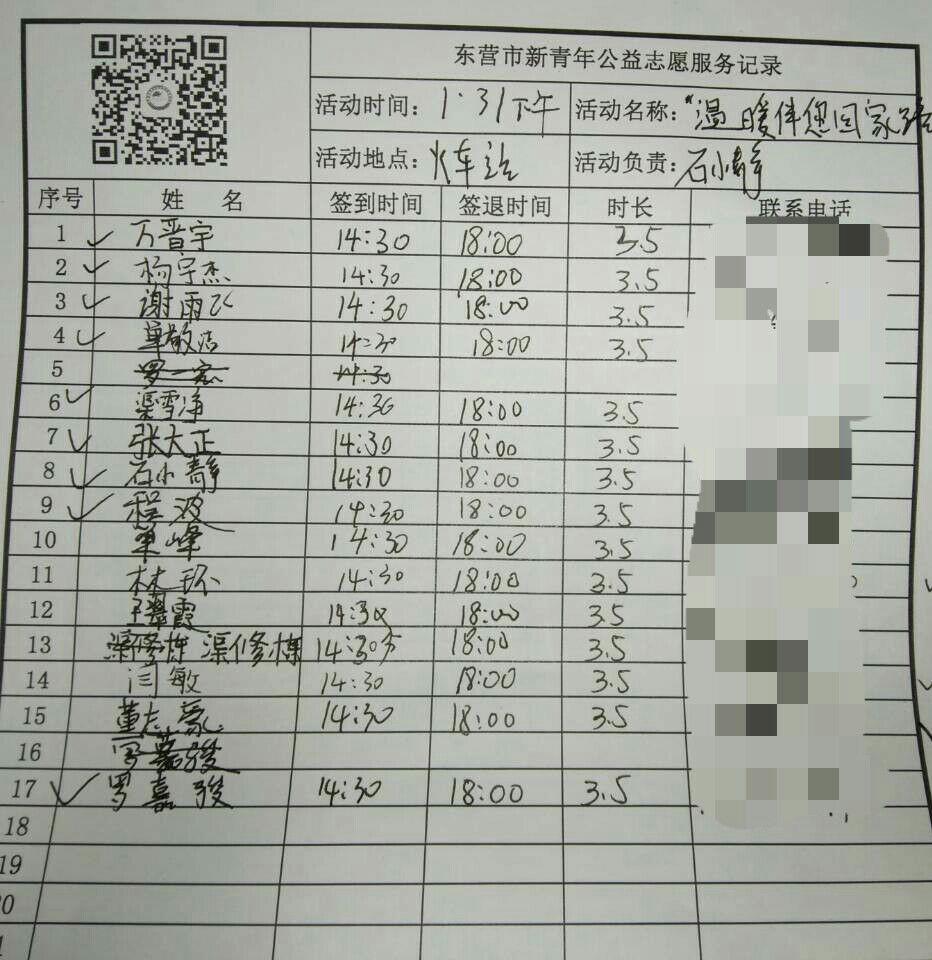 东营市新青年公益志愿服务记录
活动时间： 1·31下午 活动名称： "温暖伴您回家路
活动地点： 火车站 活动负责： 石小静
序号 姓 名 签到时间 签退时间 时长 联系电话
1 万晋宇 14:30 18:00 3.5
2 杨宇杰 14:30 18:00 3.5
3 谢雨飞 14:30 18:00 3.5
4 单敏洁 14:30 18:00 3.5
5 14:30
6 渠雪净 14:30 18:00 3.5
7 张大正 14:30 18:00 3.5
8 石小静 14:30 18:00 3.5
9 程波 14:30 18:00 3.5
10 单峰 14:30 18:00 3.5
11 林环 14:30 18:00 3.5
12 霞 14:30 18:00 3.5
13 渠修栋 渠修栋 14:30 18:00 3.5
14 闫敏 14:30 18:00 3.5
15 董志豪 14:30 18:00 3.5
16 罗嘉骏
17 罗嘉骏 14:30 18:00 3.5
18
19